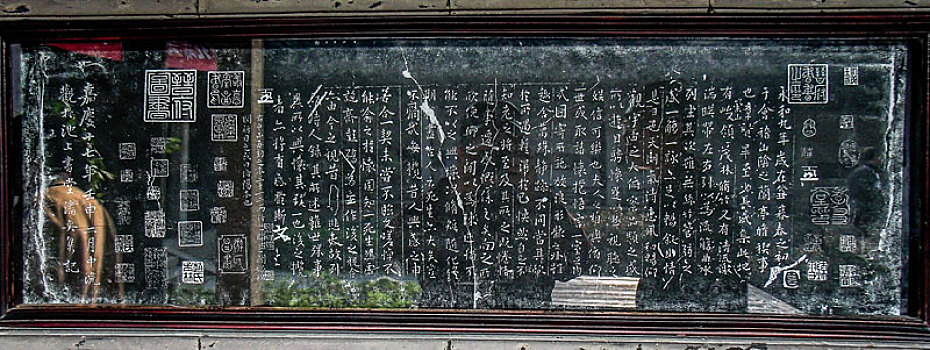 永和九年歲在癸丑暮春之初會
于會稽山陰之蘭亭脩稧事
也羣賢畢至少長咸集此地
有崇山峻領茂林脩竹又有清流激
湍暎帶左右引以為流觴曲水
列坐其次雖無絲竹管弦之
盛一觴一詠亦足以暢敘幽情
是日也天朗氣清惠風和暢仰
觀宇宙之大俯察品類之盛
所以遊目騁懷足以極視聽之
娛信可樂也夫人之相與俯仰
一世或取諸懷抱悟言一室之內
或因寄所託放浪形骸之外雖
趣舍萬殊靜躁不同當其欣
於所遇蹔得於己怏然自足不
知老之將至及其所之既惓情
隨事遷感慨係之矣向之所
欣俛仰之閒以為陳迹猶不
能不以之興懷況脩短隨化終
期於盡古人云死生亦大矣豈
不痛哉每攬昔人興感之由
若合一契未嘗不臨文嗟悼不
能喻之於懷固知一死生為虛
誕齊彭殤為妄作後之視今
亦由今之視昔悲夫故列
敘時人錄其所述雖世殊事
異所以興懷其致一也後之攬
者亦將有感於斯文
晉府圖書
嘉慶十七年壬申二月中浣
觀於池上書屋潘奕雋記